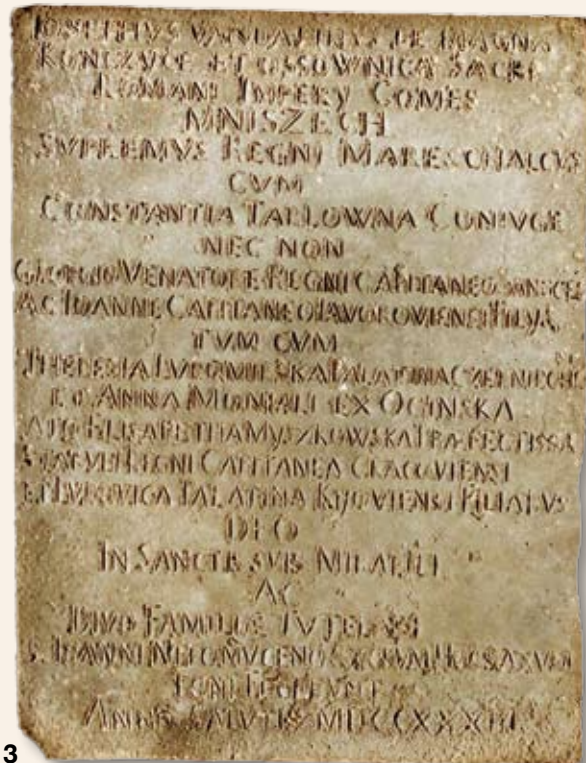 IOSEPHVS VANDALINVS DE MAGNA
KONCZYCE ET OSSOWNICA SACRI
ROMANI IMPERY COMES
MNISZECH
SVPREMVS REGNI MARESCHALCVS
CVM
CONSTANTIA TARLOWNA CONIVGE
NEC NON
GEORGIO VENATORE REGNI CAPITANEO
AC IOANNE CAPITANEO IAVOROVIENSI FILYS
TVM CVM
THERESIA LVBOMIRSKA PALATINA
ET ANNA MONIALI EX OGINSKA
ATQ ELISABETHA MYSZKOWSKA PRÆFECTISSA
REGNI CAPITANEA CRACOVIENSI
ET LVDVVIGA PALATINA KIJOVIENSI FILIABVS
DEO
IN SANCTIS SVIS MIRABILI
AC
DIVO FAMILIÆ TVTELARI
S. IOANNI NEPOMVCENO
ANNO SALVTIS
3